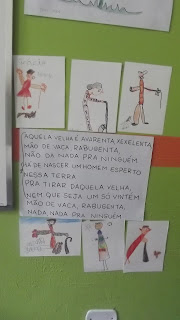 AQUELA VELHA É AVARENTA, XEXELENTA
MÃO DE VACA, RABUGENTA,
NÃO DA NADA PRA NINGUÉM
HÁ DE NASCER UM HOMEM ESPERTO
NESSA TERRA
PRA TIRAR DAQUELA VELHA,
NEM QUE SEJA UM SÓ VINTÉM
MÃO DE VACA, RABUGENTA,
NADA, NADA PRA NINGUÉM